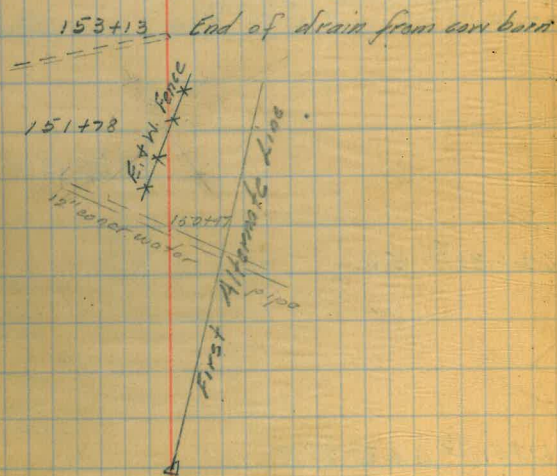 153+13 End of drain from cow barn
E. + W. Fence
151+78
150+47
12" concr. water pipe
First Alternate Line